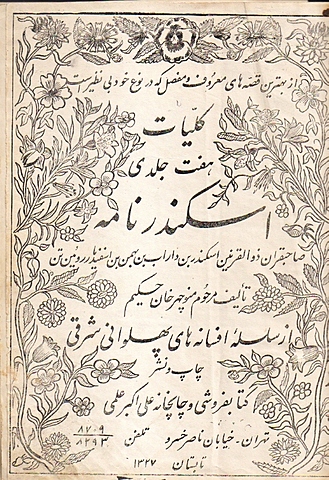 از بهترین قصه های معروف و مفصل که در نوع خود بی نظیر است
کلیات
هفت جلدی
اسکندرنامه
صاحبقران ذوالقرنین اسکندر بن داراب بن بهمن بن اسفندیار روئین تن
تألیف مرحوم منوچهر خان حکیم
از سلسلهٔ افسانه های پهلوانی شرقی
چاپ و نشر
کتابفروشی و چاپخانه علی اکبر علمی
تهران - خیابان ناصرخسرو تلفن ۸۷۰۹ ۸۲۹۳
تابستان ۱۳۲۷